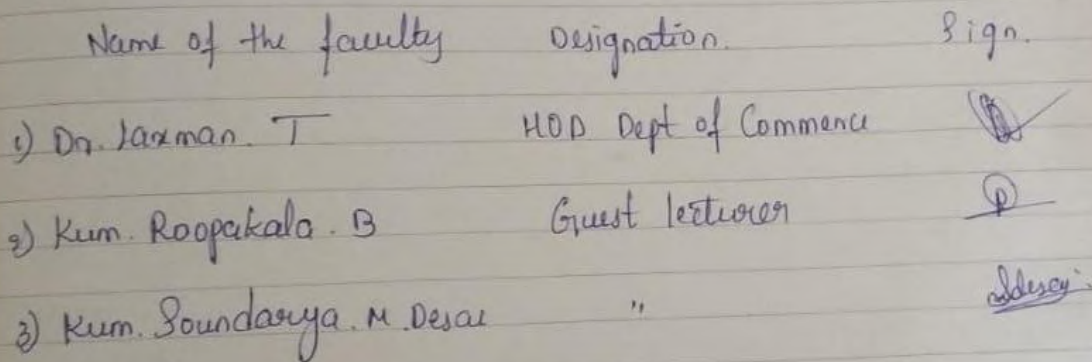 Name of the faculty Designation. Sign.
1) Dr. Laxman. T HOD Dept of Commerce
2) Kum. Roopakala. B Guest lecturer
3) Kum. Soundarya. M. Desai "